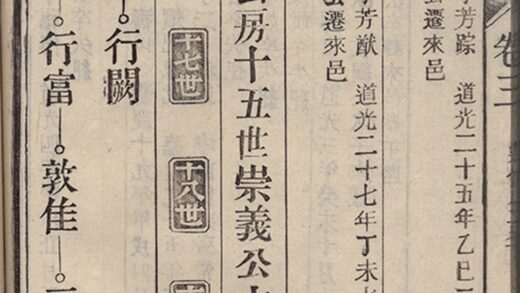 卷三
芳踪 道光二十五年乙巳
遷來邑
芳猷 道光二十七年丁未
遷來邑
房十五世崇義公
十七世 十八世
行闕
行富 敦佳